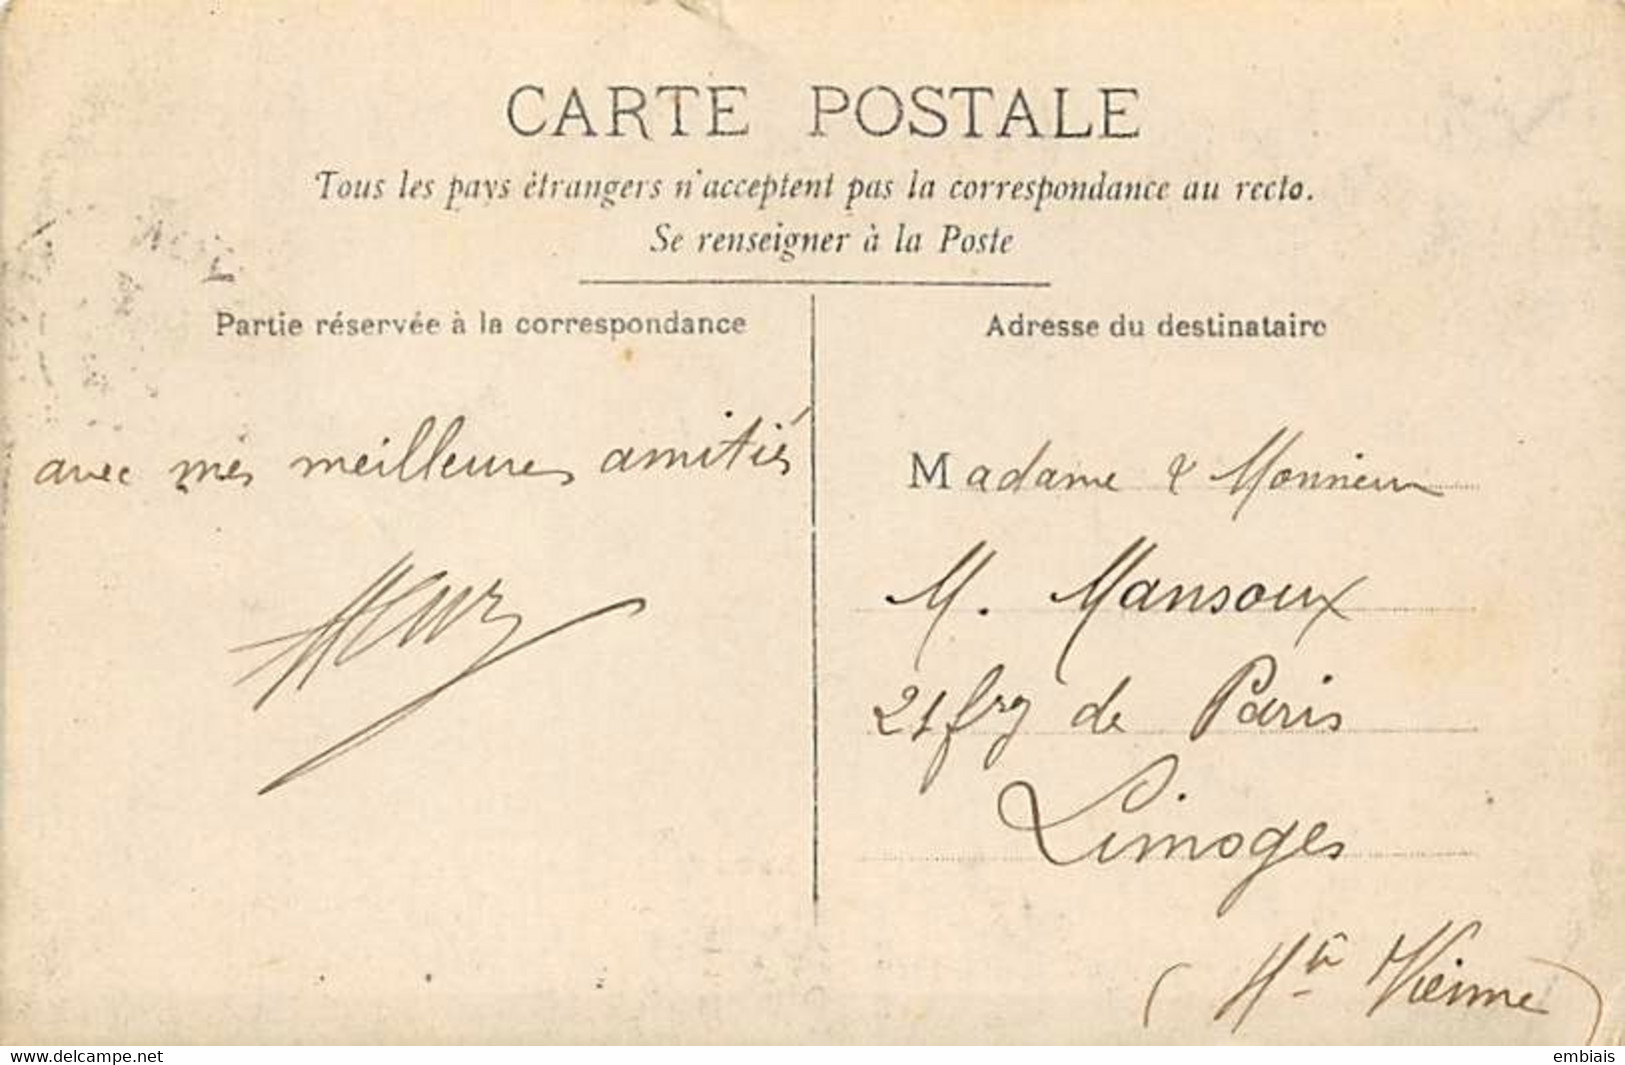 CARTE POSTALE
Tous les pays étrangers n'acceptent pas la correspondance au recto.
Se renseigner à la Poste
Partie réservée à la correspondance
avec mes meilleures amitiés
Adresse du destinataire
Madame & Monsieur
M. Mansoux
21 fbg de Paris
Limoges
(Hte Vienne)
www.delcampe.net
embiais